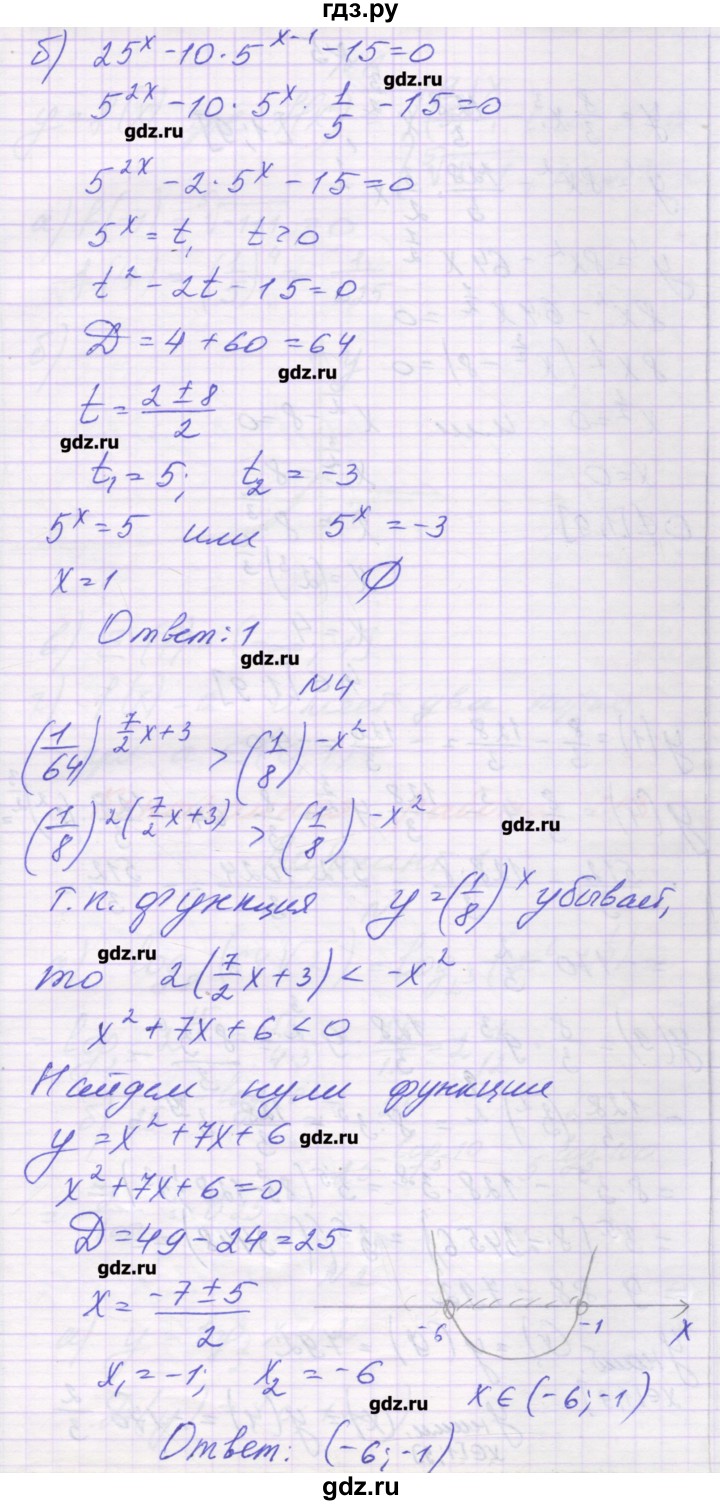 гдз.ру
б) 25^x - 10 · 5^(x-1) - 15 = 0
gdz.ru
5^(2x) - 10 · 5^x · 1/5 - 15 = 0
gdz.ru
5^(2x) - 2 · 5^x - 15 = 0
5^x = t, t > 0
t^2 - 2t - 15 = 0
D = 4 + 60 = 64
gdz.ru
t = (2 ± 8)/2
gdz.ru
t₁ = 5; t₂ = -3
5^x = 5 или 5^x = -3
x = 1 ∅
Ответ: 1
gdz.ru
N4
(1/64)^(7/2 x + 3) > (1/8)^(-x^2)
(1/8)^(2(7/2 x + 3)) > (1/8)^(-x^2)
gdz.ru
т.к. функция y = (1/8)^x убывает,
gdz.ru
то 2(7/2 x + 3) < -x^2
x^2 + 7x + 6 < 0
Найдем нули функции
y = x^2 + 7x + 6 gdz.ru
x^2 + 7x + 6 = 0
D = 49 - 24 = 25
gdz.ru
x = (-7 ± 5)/2
-6 -1 x
x₁ = -1; x₂ = -6
gdz.ru
x ∈ (-6; -1)
Ответ: (-6; -1)
gdz.ru